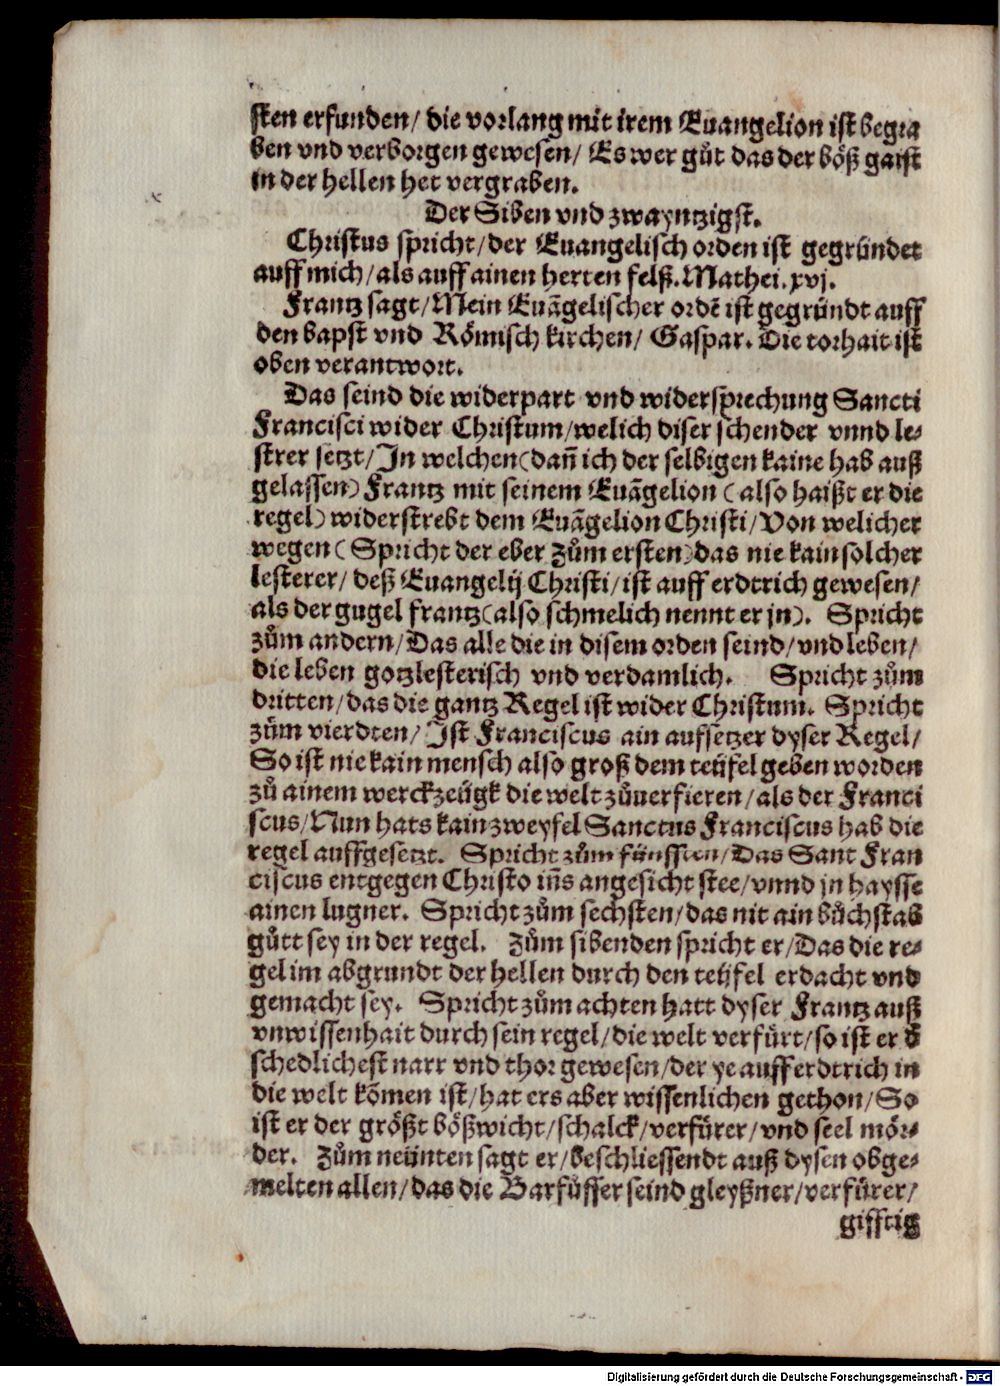 sten erfunden/ die vorlang mit irem Euangelion ist begra
ben vnd verborgen gewesen/ Es wer gůt das der böß gaist
in der hellen het vergraben.
Der Siben vnd zwayntzigst.
Christus spricht/der Euangelisch orden ist gegründet
auff mich/als auff ainen herten felß. Mathei. xvj.
Frantz sagt/Mein Euãgelischer ordẽ ist gegründt auff
den bapst vnd Römisch kirchen/ Gaspar. Die torhait ist
oben verantwort.
Das seind die widerpart vnd widersprechung Sancti
Francisci wider Christum/welich diser schender vnnd le⸗
strer setzt/In welchen(dañ ich der selbigen kaine hab auß
gelassen) Frantz mit seinem Euãgelion (also haißt er die
regel) widerstrebt dem Euãgelion Christi/Von welicher
wegen( Spricht der eber zům ersten)das nie kain solcher
lesterer/ deß Euangelij Christi/ist auff erdtrich gewesen/
als der gugel frantz(also schmelich nennt er jn). Spricht
zům andern/Das alle die in disem orden seind/vnd leben/
die leben gotzlesterisch vnd verdamlich. Spricht zům
dritten/das die gantz Regel ist wider Christum. Spricht
zům vierdten/ Ist Franciscus ain aufsetzer dyser Regel/
So ist nie kain mensch also groß dem teüfel geben worden
zů ainem werckzeügk die welt zůuerfieren/als der Franci
scus/Nun hats kain zweyfel Sanctus Franciscus hab die
regel auffgesetzt. Spricht zům fünfften/Das Sant Fran
ciscus entgegen Christo iñs angesicht stee/vnnd jn haysse
ainen lugner. Spricht zům sechsten/das nit ain bůchstab
gůtt sey in der regel. Zům sibenden spricht er/Das die re⸗
gel im abgrundt der hellen durch den teüfel erdacht vnd
gemacht sey. Spricht zům achten hatt dyser Frantz auß
vnwissenhait durch sein regel/die welt verfürt/so ist er d̕
schedlichest narr vnd thor gewesen/der ye auff erdtrich in
die welt kõmen ist/hat ers aber wissenlichen gethon/So
ist er der größt bößwicht/schalck/verfürer/vnd seel mör⸗
der. Zům neünten sagt er/beschliessendt auß dysen obge⸗
melten allen/das die Barfůsser seind gleyßner/verfürer/
gifftig
Digitalisierung gefördert durch die Deutsche Forschungsgemeinschaft - DFG